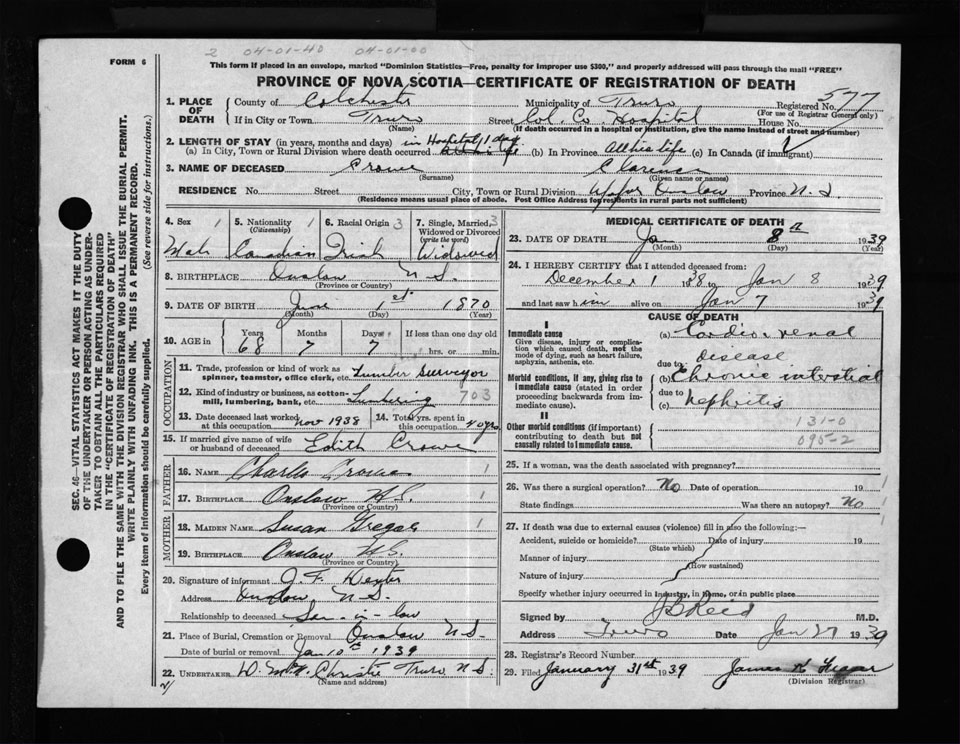 2 04-01-40 04-01-00
FORM 6
This form if placed in an envelope, marked "Dominion Statistics—Free, penalty for improper use $300," and properly addressed will pass through the mail "FREE"
PROVINCE OF NOVA SCOTIA—CERTIFICATE OF REGISTRATION OF DEATH
SEC. 46—VITAL STATISTICS ACT MAKES IT THE DUTY
OF THE UNDERTAKER OR PERSON ACTING AS UNDER-
TAKER TO OBTAIN ALL THE PARTICULARS REQUIRED
IN THE "CERTIFICATE OF REGISTRATION OF DEATH"
AND TO FILE THE SAME WITH THE DIVISION REGISTRAR WHO SHALL ISSUE THE BURIAL PERMIT.
WRITE PLAINLY WITH UNFADING INK. THIS IS A PERMANENT RECORD.
Every item of information should be carefully supplied. (See reverse side for instructions.)
1. PLACE OF DEATH County of Colchester Municipality of Truro Registered No. 577
(For use of Registrar General only)
If in City or Town Truro Street Col. Co. Hospital House No.
(Name) (If death occurred in a hospital or institution, give the name instead of street and number)
2. LENGTH OF STAY (in years, months and days) in Hospital 1 day
(a) In City, Town or Rural Division where death occurred (b) In Province all his life (c) In Canada (if immigrant)
3. NAME OF DECEASED Crowe Clarence
(Surname) (Given name or names)
RESIDENCE No. Street City, Town or Rural Division Upper Onslow Province N.S
(Residence means usual place of abode. Post Office Address for residents in rural parts not sufficient)
4. Sex 1 5. Nationality 1 (Citizenship) 6. Racial Origin 3 7. Single, Married, Widowed or Divorced (write the word) 3
Male Canadian Irish Widowed
8. BIRTHPLACE Onslow N.S.
(Province or Country)
9. DATE OF BIRTH June 1st 1870
(Month) (Day) (Year)
10. AGE in Years Months Days If less than one day old
68 7 7 hrs. or min.
OCCUPATION
11. Trade, profession or kind of work as spinner, teamster, office clerk, etc. Lumber Surveyor
12. Kind of industry or business, as cotton-mill, lumbering, bank, etc. Lumbering 703
13. Date deceased last worked at this occupation Nov 1938 14. Total yrs. spent in this occupation 40 yrs.
15. If married give name of wife or husband of deceased Edith Crowe
FATHER
16. NAME Charles Crowe 1
17. BIRTHPLACE Onslow N.S. 1
(Province or Country)
MOTHER
18. MAIDEN NAME Susan 1
19. BIRTHPLACE Onslow N.S.
(Province or Country)
20. Signature of informant J. F. Dexter
Address Onslow N.S.
Relationship to deceased Son-in-law
21. Place of Burial, Cremation or Removal Onslow N.S.
Date of burial or removal Jan 10th 1939
22. UNDERTAKER Christie Truro N.S.
(Name and address)
MEDICAL CERTIFICATE OF DEATH
23. DATE OF DEATH Jan 8 1939
(Month) (Day)
24. I HEREBY CERTIFY that I attended deceased from:
December 1 1938 to Jan 8 1939
and last saw him alive on Jan 7 1939
CAUSE OF DEATH
I
Immediate cause
Give disease, injury or complication which caused death, not the mode of dying, such as heart failure, asphyxia, asthenia, etc.
(a) Cardio-renal
disease
due to
Morbid conditions, if any, giving rise to immediate cause (stated in order proceeding backwards from immediate cause).
(b) Chronic interstitial
due to
(c) Nephritis
II
Other morbid conditions (if important) contributing to death but not causally related to immediate cause.
131-0
095-2
25. If a woman, was the death associated with pregnancy?
26. Was there a surgical operation? No Date of operation 19
State findings Was there an autopsy? No
27. If death was due to external causes (violence) fill in also the following:—
Accident, suicide or homicide? Date of injury 19
(State which)
Manner of injury
(How sustained)
Nature of injury
Specify whether injury occurred in industry, in home, or in public place
Signed by Reid M.D.
Address Truro Date Jan 27 1939
28. Registrar's Record Number
29. Filed January 31st 1939 James
(Division Registrar)